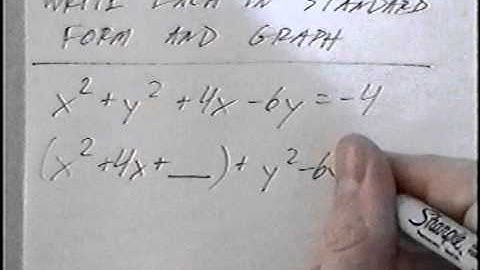 WRITE EACH IN STANDARD
FORM AND GRAPH
x² + y² + 4x - 6y = -4
(x² + 4x + __) + y² - 6
Sharpie